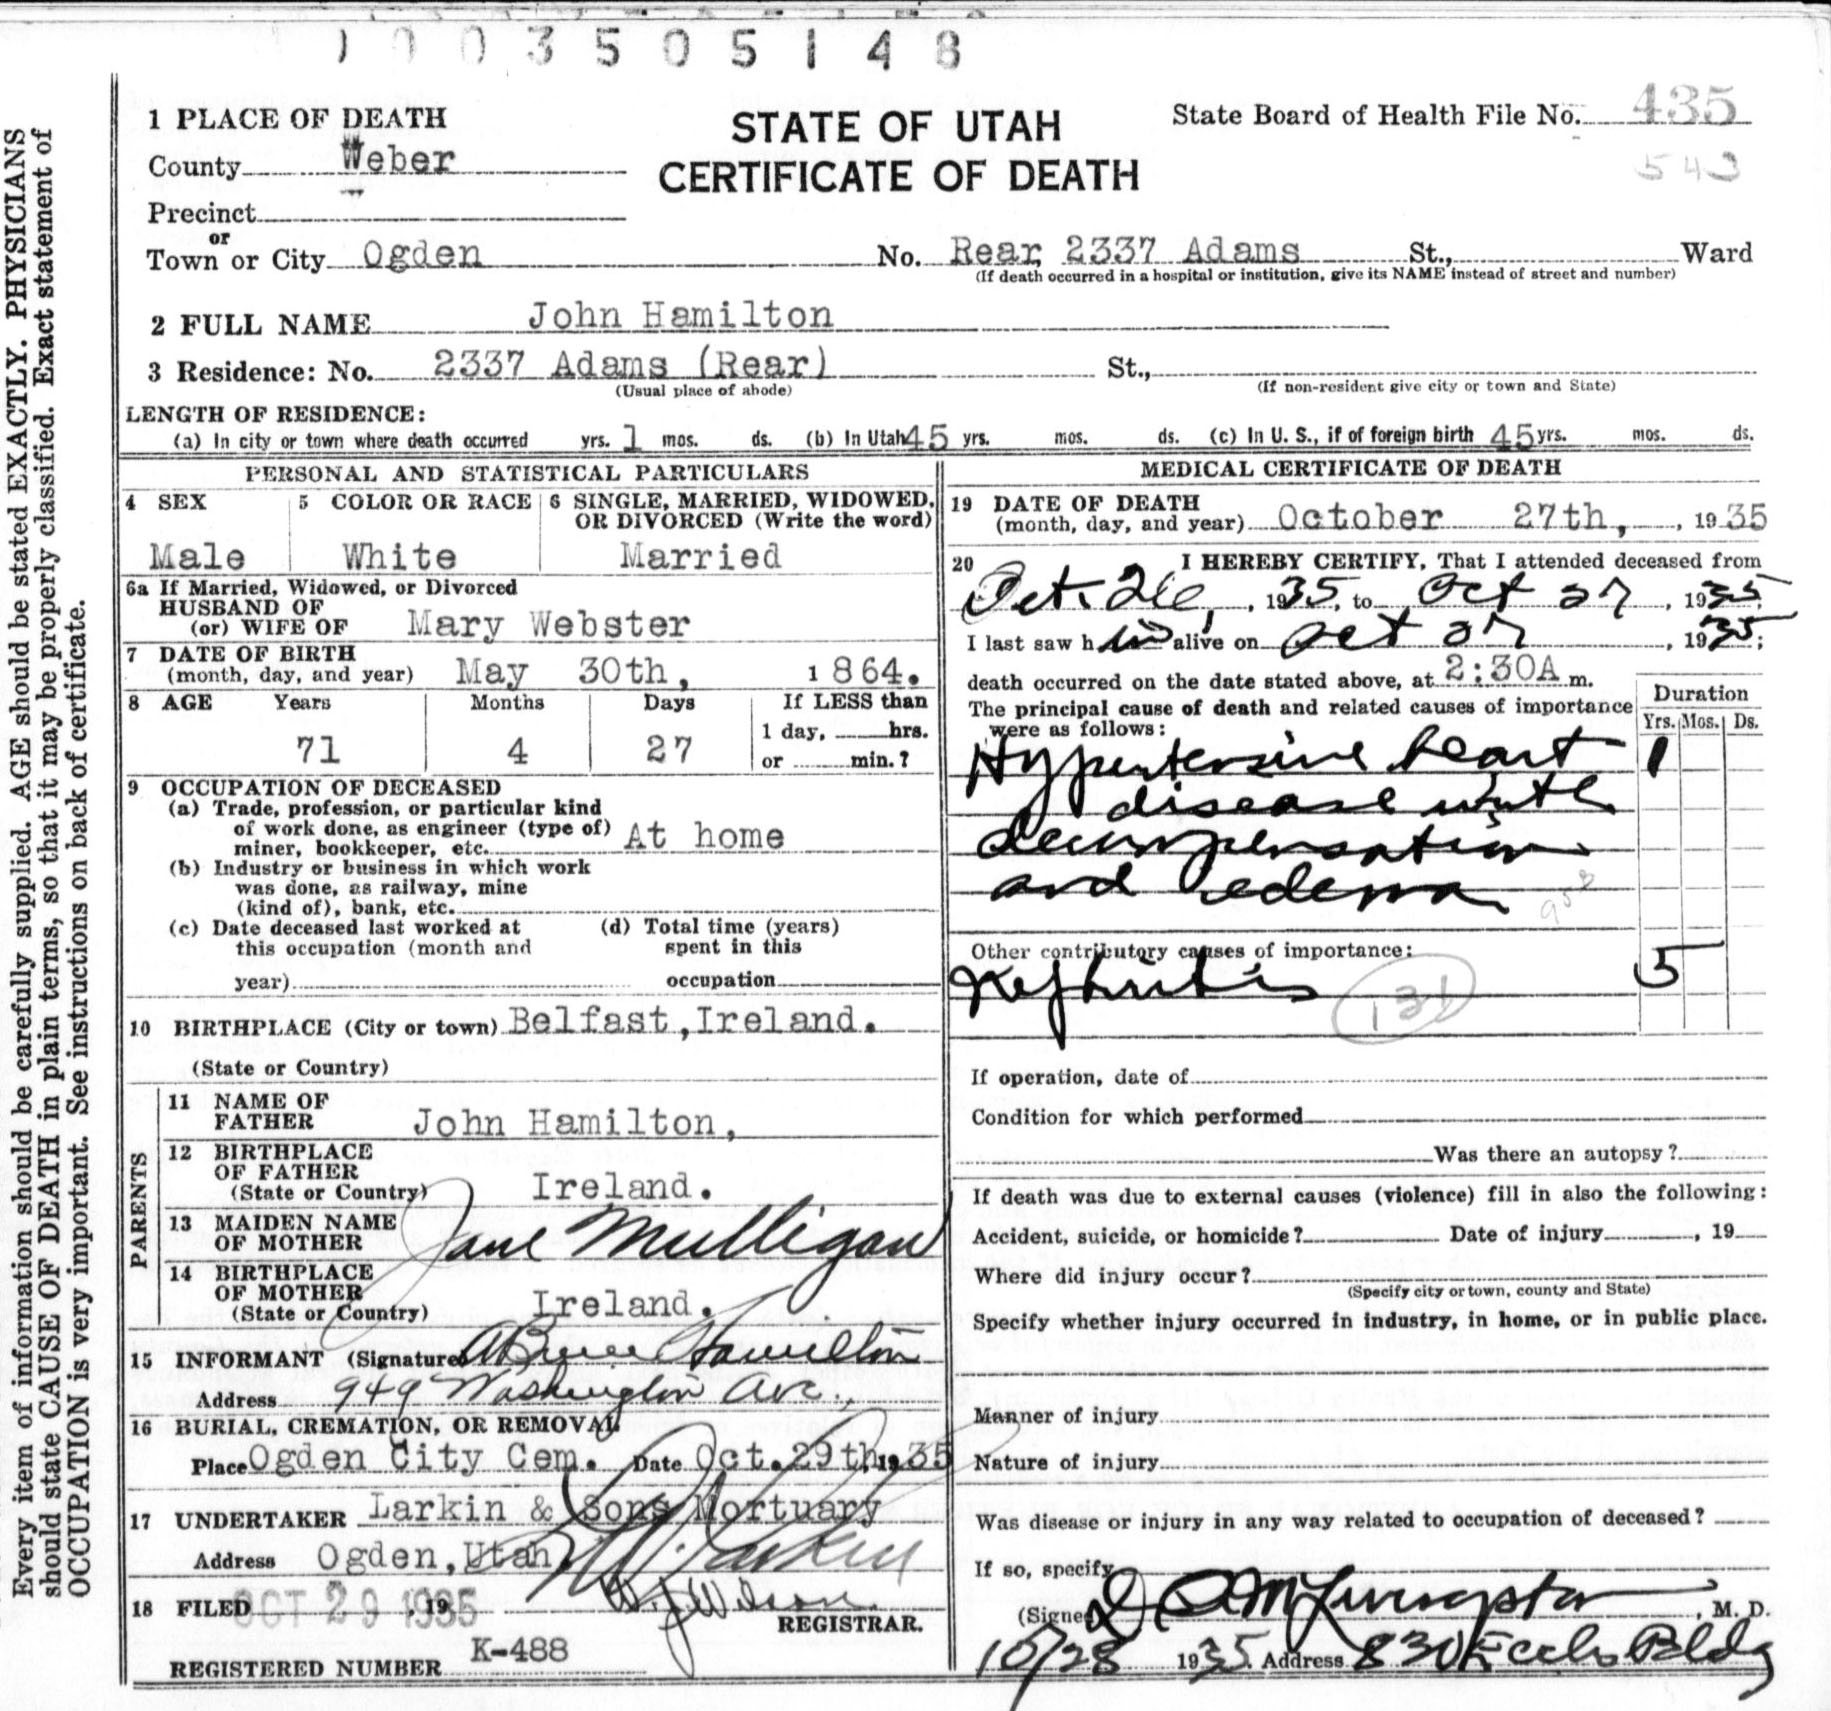 1003505148
1 PLACE OF DEATH
STATE OF UTAH
CERTIFICATE OF DEATH
State Board of Health File No. 435
543
County Weber
Precinct
or
Town or City Ogden No. Rear 2337 Adams St., Ward
(If death occurred in a hospital or institution, give its NAME instead of street and number)
2 FULL NAME John Hamilton
3 Residence: No. 2337 Adams (Rear) St.,
(Usual place of abode) (If non-resident give city or town and State)
LENGTH OF RESIDENCE:
(a) In city or town where death occurred yrs. 1 mos. ds. (b) In Utah 45 yrs. mos. ds. (c) In U. S., if of foreign birth 45 yrs. mos. ds.
PERSONAL AND STATISTICAL PARTICULARS
4 SEX 5 COLOR OR RACE 6 SINGLE, MARRIED, WIDOWED,
OR DIVORCED (Write the word)
Male White Married
6a If Married, Widowed, or Divorced
HUSBAND OF
(or) WIFE OF Mary Webster
7 DATE OF BIRTH
(month, day, and year) May 30th, 1864.
8 AGE Years Months Days If LESS than
1 day, hrs.
71 4 27 or min.?
9 OCCUPATION OF DECEASED
(a) Trade, profession, or particular kind
of work done, as engineer (type of)
miner, bookkeeper, etc. At home
(b) Industry or business in which work
was done, as railway, mine
(kind of), bank, etc.
(c) Date deceased last worked at
this occupation (month and
year)
(d) Total time (years)
spent in this
occupation
10 BIRTHPLACE (City or town) Belfast, Ireland.
(State or Country)
PARENTS
11 NAME OF
FATHER John Hamilton,
12 BIRTHPLACE
OF FATHER
(State or Country) Ireland.
13 MAIDEN NAME
OF MOTHER Jane Mulligan
14 BIRTHPLACE
OF MOTHER
(State or Country) Ireland.
15 INFORMANT (Signature) A Bruce Hamilton
Address 949 Washington Ave.,
16 BURIAL, CREMATION, OR REMOVAL
Place Ogden City Cem. Date Oct. 29th, 1935
17 UNDERTAKER Larkin & Sons Mortuary
Address Ogden, Utah. Larkin
18 FILED OCT 29 1935, 19 W. J. Wilson
REGISTRAR.
REGISTERED NUMBER K-488
MEDICAL CERTIFICATE OF DEATH
19 DATE OF DEATH
(month, day, and year) October 27th, , 1935
20 I HEREBY CERTIFY, That I attended deceased from
Oct. 26, , 1935, to Oct 27 , 1935,
I last saw him alive on Oct 27 , 1935;
death occurred on the date stated above, at 2:30A m.
The principal cause of death and related causes of importance
were as follows:
Duration
Yrs. Mos. Ds.
Hypertensive heart 1
disease with
decompensation
and edema
Other contributory causes of importance:
Nephritis 5
131
If operation, date of
Condition for which performed
Was there an autopsy?
If death was due to external causes (violence) fill in also the following:
Accident, suicide, or homicide? Date of injury , 19
Where did injury occur?
(Specify city or town, county and State)
Specify whether injury occurred in industry, in home, or in public place.
Manner of injury
Nature of injury
Was disease or injury in any way related to occupation of deceased?
If so, specify
(Signed) Livingston , M. D.
10/28 1935. Address 830 Eccles Bldg
Every item of information should be carefully supplied. AGE should be stated EXACTLY. PHYSICIANS
should state CAUSE OF DEATH in plain terms, so that it may be properly classified. Exact statement of
OCCUPATION is very important. See instructions on back of certificate.